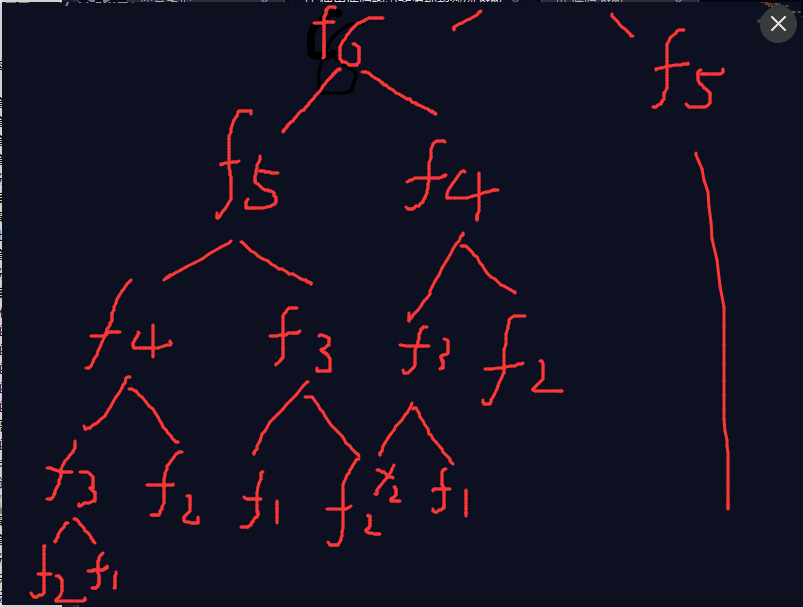 f6
f5
f5 f4
f4 f3 f3 f2
f3 f2 f1 f2 f2 f1
f2 f1